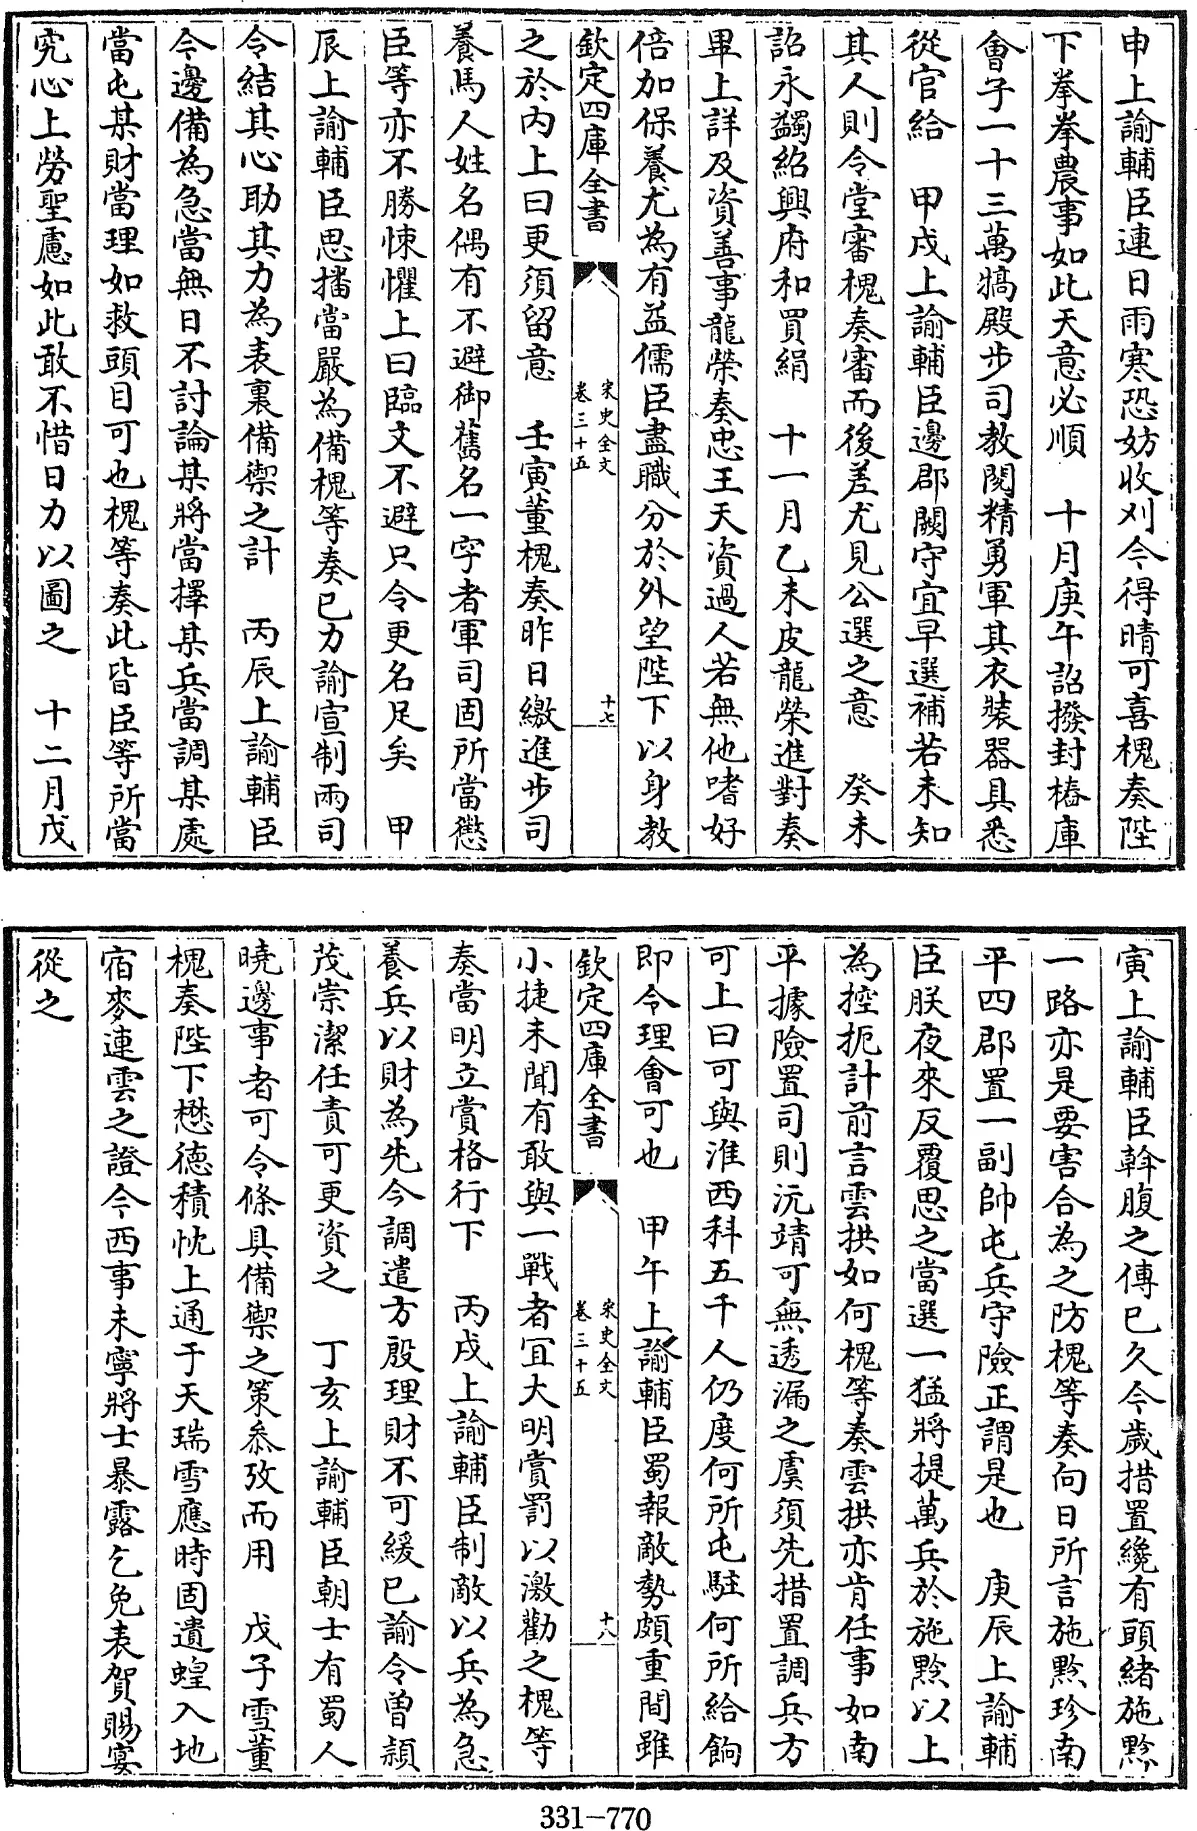 申上諭輔臣連日雨寒恐妨收刈今得晴可喜槐奏陛
下拳拳農事如此天意必順　十月庚午詔撥封樁庫
會子一十三萬犒殿步司教閱精勇軍其衣裝器具悉
從官給　甲戌上諭輔臣邊郡闕守宜早選補若未知
其人則令堂審槐奏審而後差尤見公選之意　癸未
詔永蠲紹興府和買絹　十一月乙未皮龍榮進對奏
畢上詳及資善事龍榮奏忠王天資過人若無他嗜好
倍加保養尤為有益儒臣盡職分於外望陛下以身教
欽定四庫全書
宋史全文
卷三十五
十七
之於内上曰更須留意　壬寅董槐奏昨日繳進步司
養馬人姓名偶有不避御舊名一字者軍司固所當懲
臣等亦不勝悚懼上曰臨文不避只令更名足矣　甲
辰上諭輔臣思播當嚴為備槐等奏已力諭宣制兩司
令結其心助其力為表裏備禦之計　丙辰上諭輔臣
今邊備為急當無日不討論某將當擇某兵當調某處
當屯某財當理如救頭目可也槐等奏此皆臣等所當
究心上勞聖慮如此敢不惜日力以圖之　十二月戊
寅上諭輔臣斡腹之傳已久今歲措置纔有頭緒施黔
一路亦是要害合為之防槐等奏向日所言施黔珍南
平四郡置一副帥屯兵守險正謂是也　庚辰上諭輔
臣朕夜來反覆思之當選一猛將提萬兵於施黔以上
為控扼計前言雲拱如何槐等奏雲拱亦肯任事如南
平據險置司則沅靖可無透漏之虞須先措置調兵方
可上曰可與淮西科五千人仍度何所屯駐何所給餉
即令理會可也　甲午上諭輔臣蜀報敵勢頗重間雖
欽定四庫全書
宋史全文
卷三十五
十八
小捷未聞有敢與一戰者宜大明賞罰以激勸之槐等
奏當明立賞格行下　丙戌上諭輔臣制敵以兵為急
養兵以財為先今調遣方殷理財不可緩已諭令曾頴
茂崇潔任責可更資之　丁亥上諭輔臣朝士有蜀人
曉邊事者可令條具備禦之策叅攷而用　戊子雪董
槐奏陛下懋德積忱上通于天瑞雪應時固遺蝗入地
宿麥連雲之證今西事未寧將士暴露乞免表賀賜宴
從之
331-770